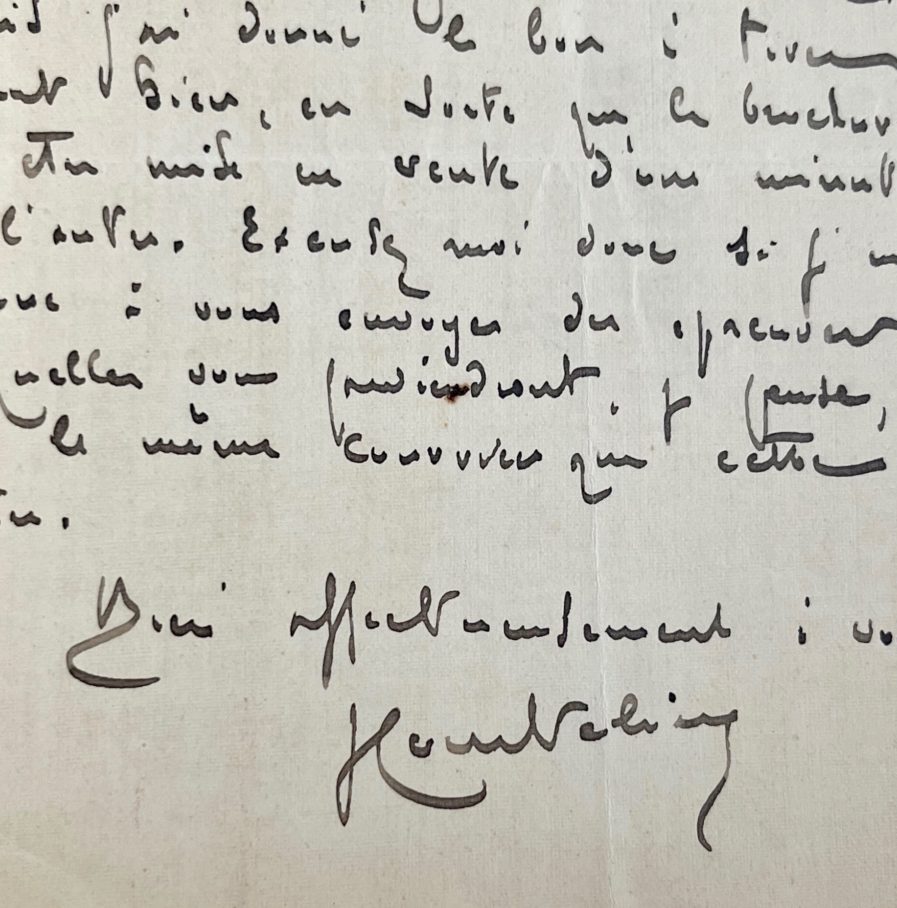 j'ai donné le bon à tirer
bien, en sorte que la brochur
être mise en vente d'une minut
l'autre. Excusez moi donc si j
à vous envoyer des épreuves
quelles vous parviendront, je pense,
le même courrier que cette
Bien affectueusement à vo